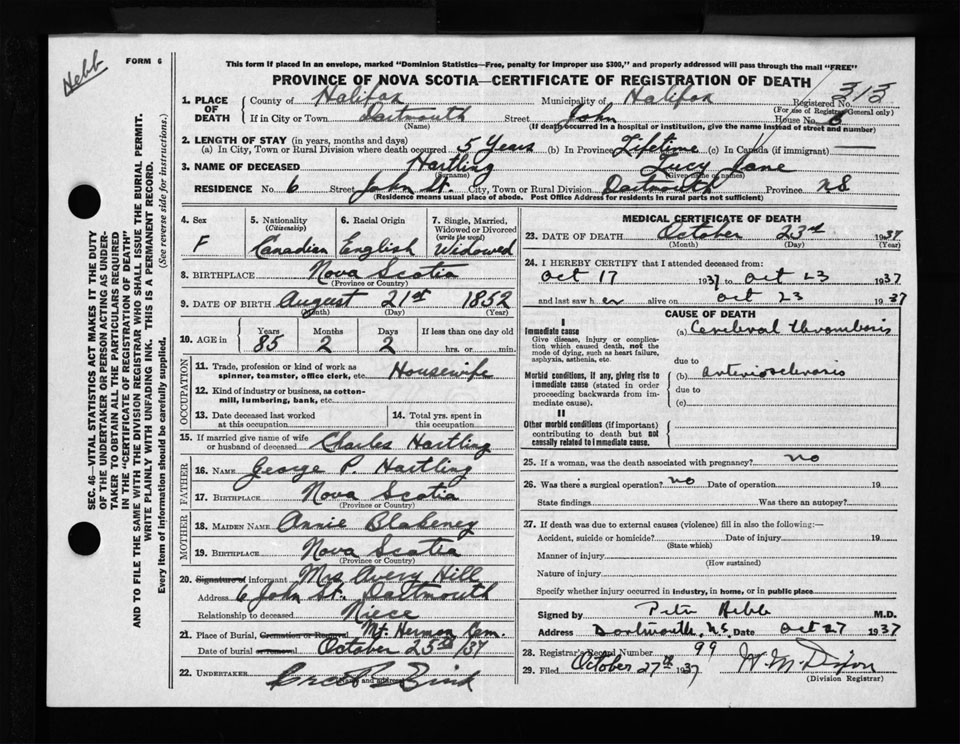 Hebb
FORM 6
This form if placed in an envelope, marked "Dominion Statistics—Free, penalty for improper use $300," and properly addressed will pass through the mail "FREE"
PROVINCE OF NOVA SCOTIA—CERTIFICATE OF REGISTRATION OF DEATH
SEC. 46—VITAL STATISTICS ACT MAKES IT THE DUTY
OF THE UNDERTAKER OR PERSON ACTING AS UNDER-
TAKER TO OBTAIN ALL THE PARTICULARS REQUIRED
IN THE "CERTIFICATE OF REGISTRATION OF DEATH"
AND TO FILE THE SAME WITH THE DIVISION REGISTRAR WHO SHALL ISSUE THE BURIAL PERMIT.
WRITE PLAINLY WITH UNFADING INK. THIS IS A PERMANENT RECORD.
Every item of information should be carefully supplied. (See reverse side for instructions.)
1. PLACE OF DEATH County of Halifax Municipality of Halifax Registered No. 313
(For use of Registrar General only)
If in City or Town Dartmouth Street John House No. 6
(Name) (If death occurred in a hospital or institution, give the name instead of street and number)
2. LENGTH OF STAY (in years, months and days)
(a) In City, Town or Rural Division where death occurred 5 Years (b) In Province Lifetime (c) In Canada (if immigrant) —
3. NAME OF DECEASED Hartling Lucy Jane
(Surname) (Given name or names)
RESIDENCE No. 6 Street John St. City, Town or Rural Division Dartmouth Province N S
(Residence means usual place of abode. Post Office Address for residents in rural parts not sufficient)
4. Sex F
5. Nationality (Citizenship) Canadian
6. Racial Origin English
7. Single, Married, Widowed or Divorced (write the word) Widowed
8. BIRTHPLACE Nova Scotia
(Province or Country)
9. DATE OF BIRTH August 21st 1852
(Month) (Day) (Year)
10. AGE in Years 85 Months 2 Days 2 If less than one day old hrs. or min.
OCCUPATION
11. Trade, profession or kind of work as spinner, teamster, office clerk, etc. Housewife
12. Kind of industry or business, as cotton-mill, lumbering, bank, etc.
13. Date deceased last worked at this occupation
14. Total yrs. spent in this occupation
15. If married give name of wife or husband of deceased Charles Hartling
FATHER
16. NAME George P. Hartling
17. BIRTHPLACE Nova Scotia
(Province or Country)
MOTHER
18. MAIDEN NAME Annie Blakeney
19. BIRTHPLACE Nova Scotia
(Province or Country)
20. Signature of informant Mrs Avery Hill
Address 6 John St. Dartmouth
Relationship to deceased Niece
21. Place of Burial, Cremation or Removal Mt. Hermon Cem.
Date of burial or removal October 25th/37
22. UNDERTAKER
(Name and address)
MEDICAL CERTIFICATE OF DEATH
23. DATE OF DEATH October 23rd 1937
(Month) (Day) (Year)
24. I HEREBY CERTIFY that I attended deceased from:
Oct 17 1937 to Oct 23 1937
and last saw her alive on Oct 23 1937
CAUSE OF DEATH
I
Immediate cause
Give disease, injury or complication which caused death, not the mode of dying, such as heart failure, asphyxia, asthenia, etc.
(a) Cerebral thrombosis
due to
Morbid conditions, if any, giving rise to immediate cause (stated in order proceeding backwards from immediate cause).
(b) arteriosclerosis
due to
(c)
II
Other morbid conditions (if important) contributing to death but not causally related to immediate cause.
25. If a woman, was the death associated with pregnancy? no
26. Was there a surgical operation? no Date of operation 19
State findings Was there an autopsy?
27. If death was due to external causes (violence) fill in also the following:—
Accident, suicide or homicide? Date of injury 19
(State which)
Manner of injury
(How sustained)
Nature of injury
Specify whether injury occurred in industry, in home, or in public place
Signed by Peter Hebb M.D.
Address Dartmouth, N.S. Date Oct 27 1937
28. Registrar's Record Number 99
29. Filed October 27th 1937 W. M. Dixon
(Division Registrar)